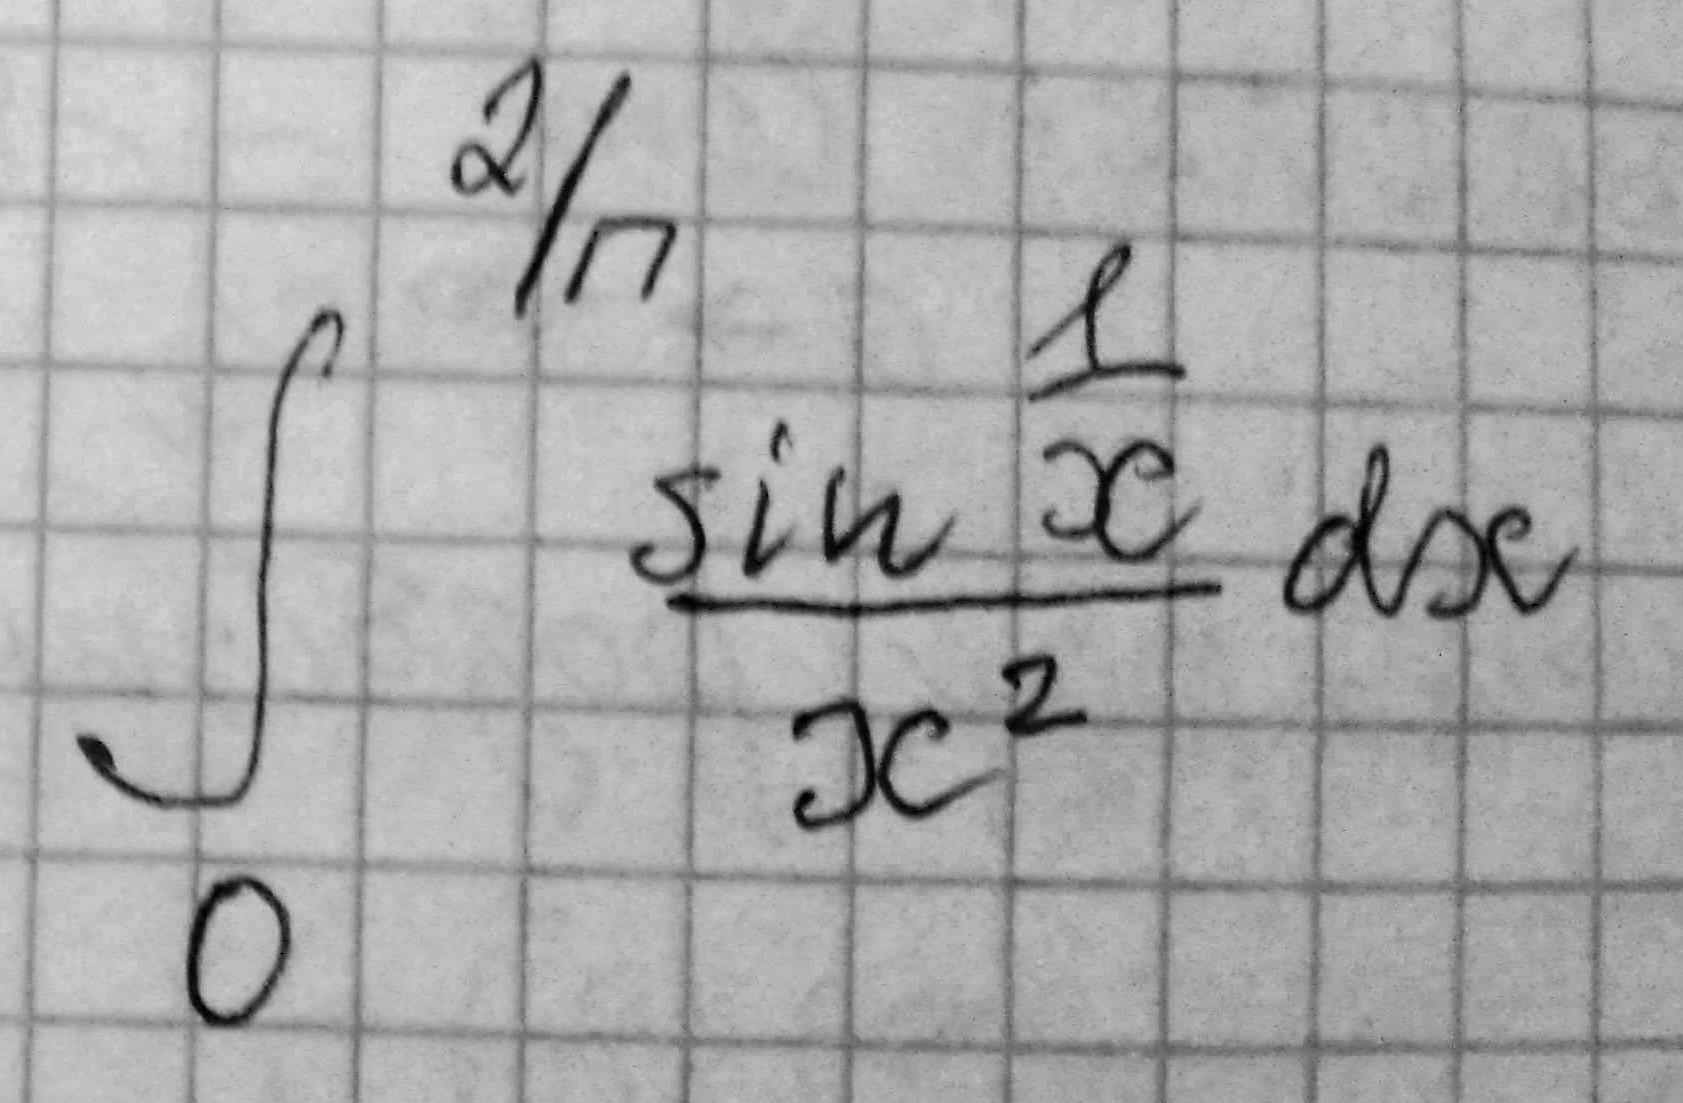 ∫₀^{2/π} \frac{sin \frac{1}{x}}{x²} dx